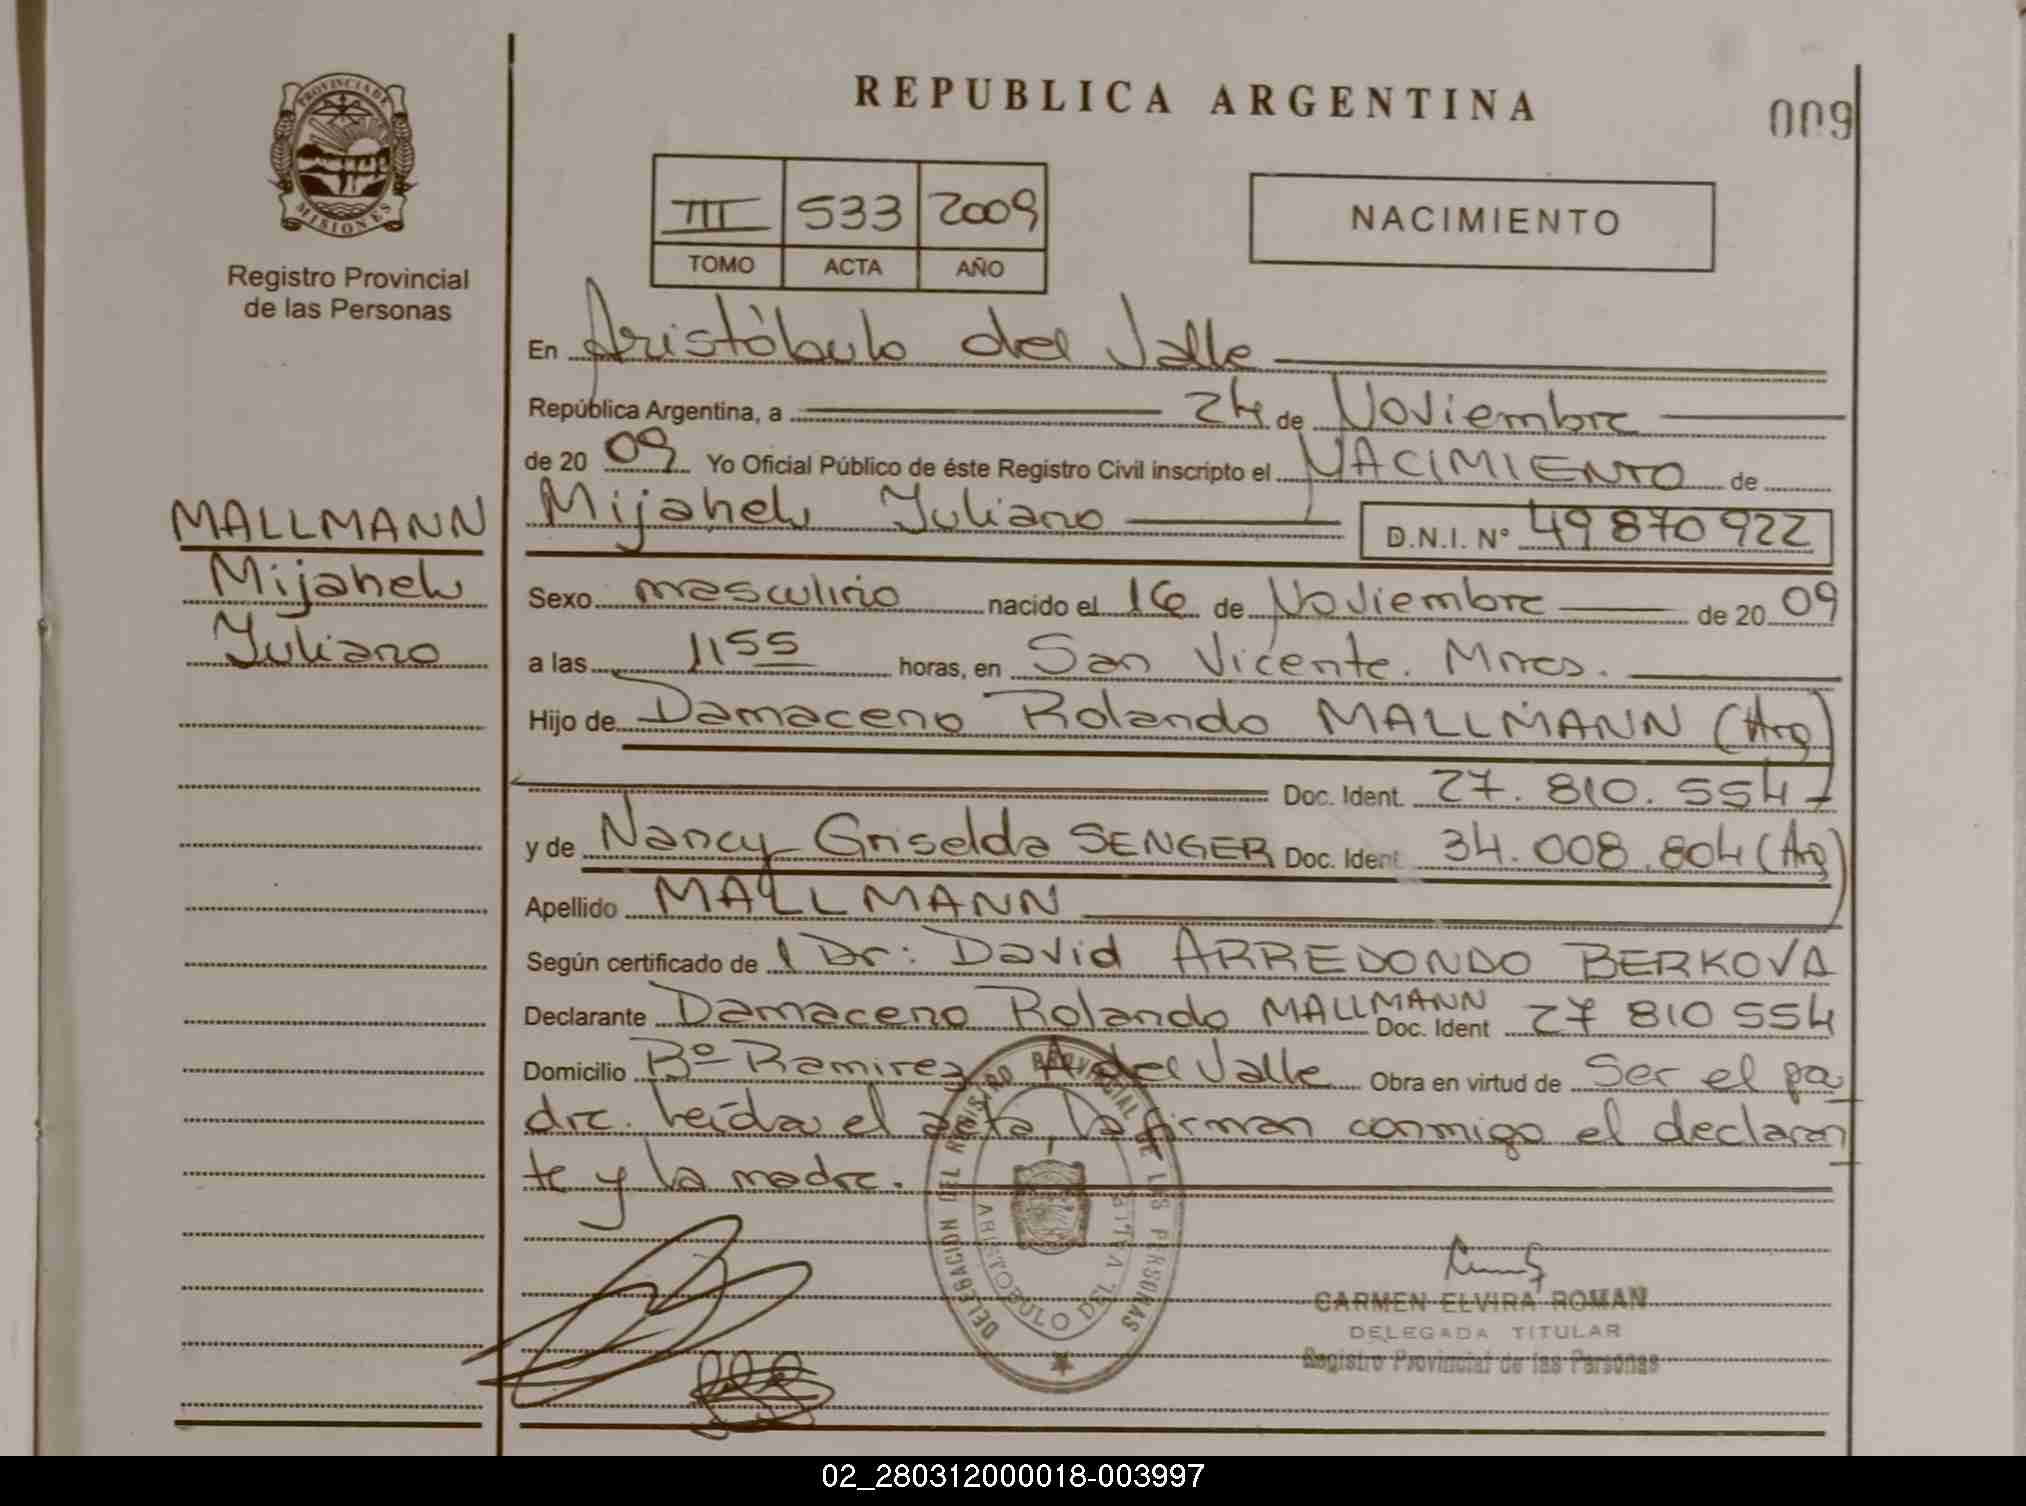 REPUBLICA ARGENTINA
009
PROVINCIA DE
MISIONES
Registro Provincial
de las Personas
III 533 2009
TOMO ACTA AÑO
NACIMIENTO
En Aristóbulo del Valle
República Argentina, a 24 de Noviembre
de 20 09 Yo Oficial Público de éste Registro Civil inscripto el NACIMIENTO de
MALLMANN
Mijahelv
Yuliano
Mijahelv Yuliano D.N.I. Nº 49 870 922
Sexo masculino nacido el 16 de Noviembre de 20 09
a las 1155 horas, en San Vicente. Mnes.
Hijo de Damaceno Rolando MALLMANN (Arg)
Doc. Ident. 27.810.554
y de Nancy Griselda SENGER Doc. Ident. 34.008.804 (Arg)
Apellido MALLMANN
Según certificado de l Dr: David ARREDONDO BERKOVA
Declarante Damaceno Rolando MALLMANN Doc. Ident 27 810 554
Domicilio Bº Ramirez A del Valle Obra en virtud de Ser el pa
dre. Leída el acta, la firman conmigo el declaran
te y la madre.
DELEGACION DEL REGISTRO PROVINCIAL DE LAS PERSONAS
ARISTOBULO DEL VALLE
CARMEN ELVIRA ROMAN
DELEGADA TITULAR
Registro Provincial de las Personas
02_280312000018-003997